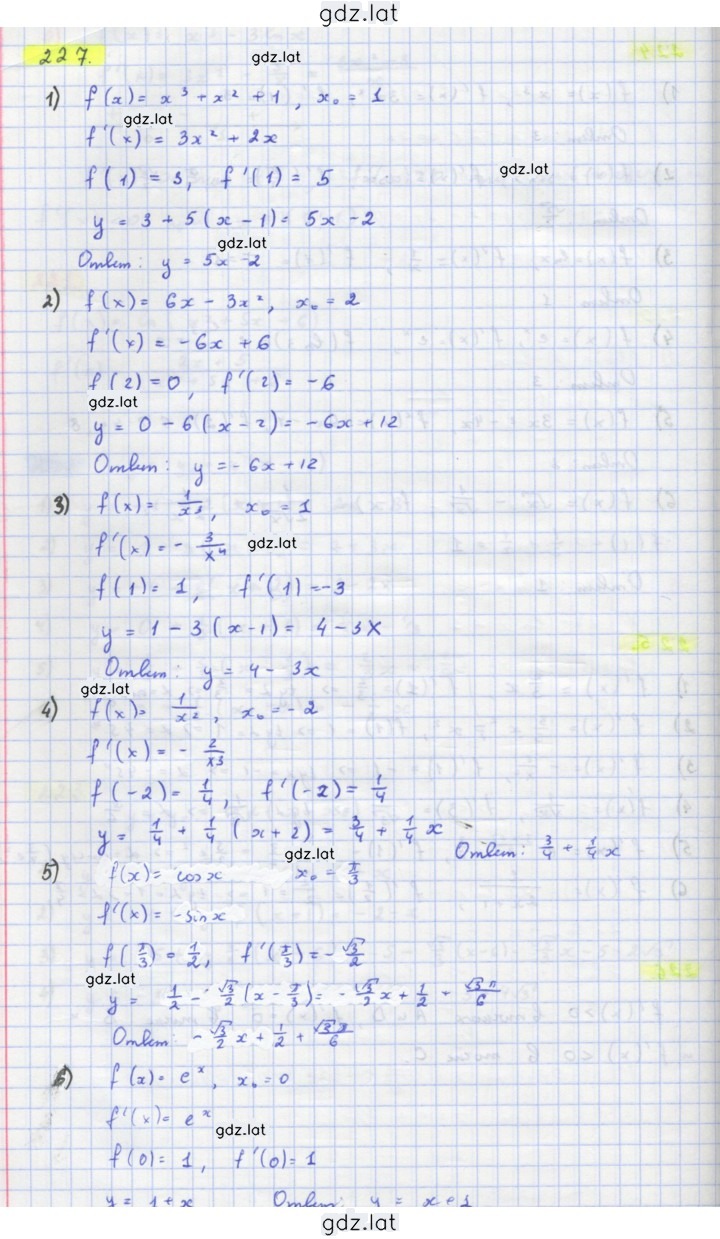 gdz.lat
227.
gdz.lat
1) f(x) = x³ + x² + 1, x₀ = 1
gdz.lat
f'(x) = 3x² + 2x
gdz.lat
f(1) = 3, f'(1) = 5
y = 3 + 5(x - 1) = 5x - 2
gdz.lat
Ответ: y = 5x - 2
2) f(x) = 6x - 3x², x₀ = 2
f'(x) = -6x + 6
f(2) = 0, f'(2) = -6
gdz.lat
y = 0 - 6(x - 2) = -6x + 12
Ответ: y = -6x + 12
3) f(x) = 1/x³, x₀ = 1
f'(x) = - 3/x⁴
gdz.lat
f(1) = 1, f'(1) = -3
y = 1 - 3(x - 1) = 4 - 3x
Ответ: y = 4 - 3x
gdz.lat
4) f(x) = 1/x², x₀ = -2
f'(x) = - 2/x3
f(-2) = 1/4, f'(-2) = 1/4
y = 1/4 + 1/4 (x + 2) = 3/4 + 1/4 x
Ответ: 3/4 + 1/4 x
gdz.lat
5) f(x) = cos x x₀ = π/3
f'(x) = -sin x
f(π/3) = 1/2, f'(π/3) = - √3/2
gdz.lat
y = 1/2 - √3/2 (x - π/3) = - √3/2 x + 1/2 + √3π/6
Ответ: - √3/2 x + 1/2 + √3π/6
6) f(x) = eˣ, x₀ = 0
f'(x) = eˣ
gdz.lat
f(0) = 1, f'(0) = 1
y = 1 + x Ответ: y = x + 1
gdz.lat